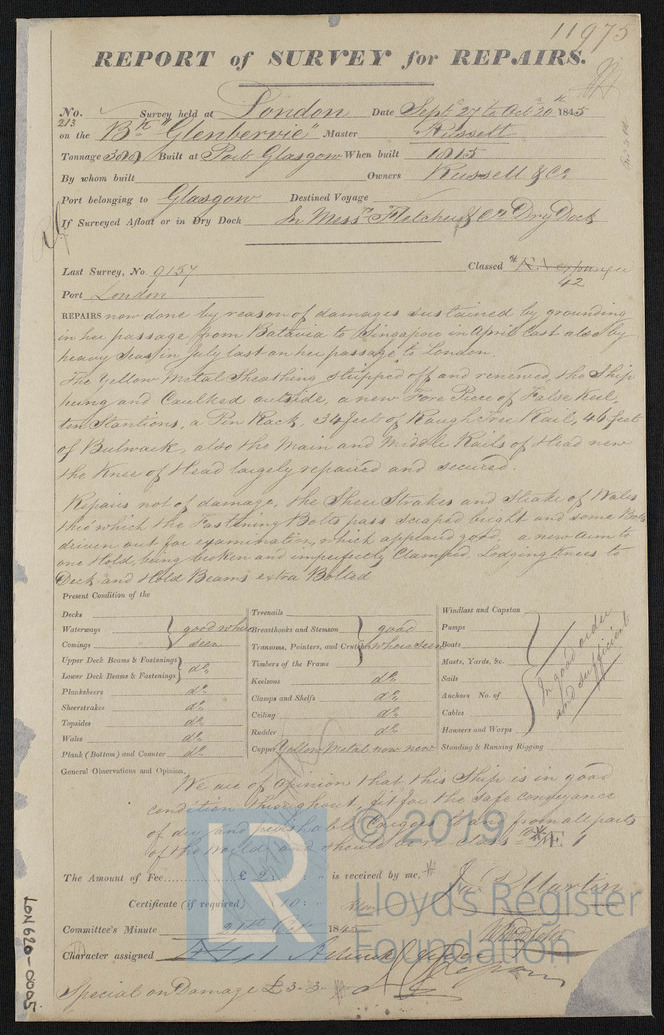 11975
REPORT of SURVEY for REPAIRS.
No. 213 Survey held at London Date Sept 27 to Oct 20th 1845
on the Bk "Glenbervie" Master Russell
Tonnage 382 Built at Port Glasgow When built 1815
By whom built Owners Russell & Co
Port belonging to Glasgow Destined Voyage
If Surveyed Afloat or in Dry Dock In Messrs Fletcher & Co Dry Dock
Last Survey, No 9157 Classed
42
Port London
REPAIRS now done by reason of damages sustained by grounding
in her passage from Batavia to Singapore in April last also by
heavy Seas in July last on her passage to London.
The Yellow Metal Sheathing stripped off and renewed, the Ship
hung and Caulked outside, a new Fore Piece of False Keel,
ten Stantions, a Pin Rack, 34 feet of Rough Tree Rail, 46 feet
of Bulwark, also the Main and Middle Rails of Head new
the Knee of Head largely repaired and secured.
Repairs not of damage, the Sheer Strakes and Strake of Wales
thro' which the Fastening Bolts pass scraped bright and some Bolts
driven out for examination, which appeared good, a new arm to
one Hold, being broken and imperfectly Clamped, Lodging Knees to
Deck and Hold Beams extra Bolted
Present Condition of the
Decks
Waterways good where
Comings seen
Upper Deck Beams & Fastenings
Lower Deck Beams & Fastenings do
Planksheers do
Sheerstrakes do
Topsides do
Wales do
Plank (Bottom) and Counter do
Treenails
Breasthooks and Stemson good
Transoms, Pointers, and Crutches where seen
Timbers of the Frame
Keelsons do
Clamps and Shelfs do
Ceiling do
Rudder do
Copper Yellow Metal now new
Windlass and Capstan
Pumps
Boats
Masts, Yards, &c.
Sails
Anchors No. of
Cables
Hawsers and Warps
Standing & Running Rigging
In good order
and sufficient
General Observations and Opinion,
We are of opinion that this Ship is in good
condition throughout, fit for the safe conveyance
of dry and perishable Cargoes to and from all parts
of the World and should
Æ 1
The Amount of Fee £ 2: is received by me,
Martin
Certificate (if required) 10:
Committee's Minute 21st Oct 1845
Character assigned
Special on Damage £3-3-
LON620-0005
© 2019
Lloyd's Register
Foundation